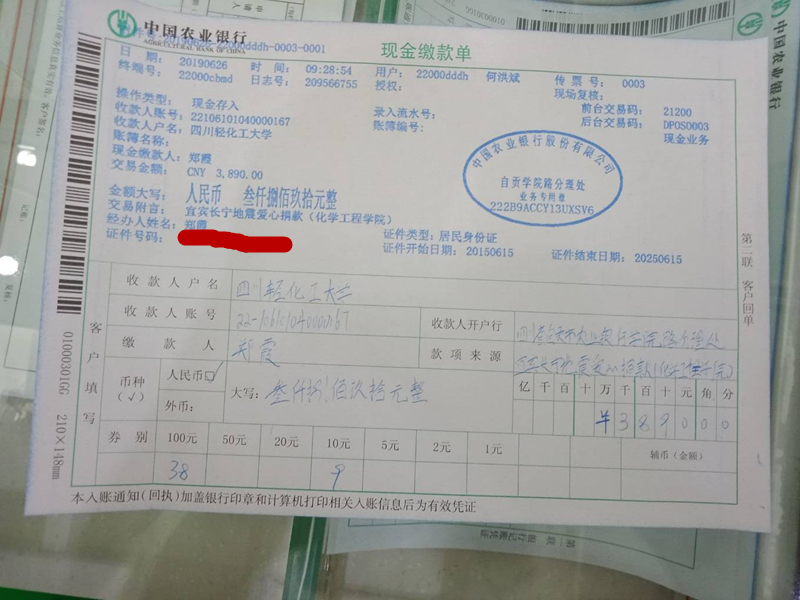 中国农业银行
AGRICULTURAL BANK OF CHINA
现金缴款单
日 期: 20190626 时 间: 09:28:54 用户: 22000dddh 何洪斌 传 票 号: 0003
终端号: 22000cbmd 日志号: 209566755 授权: 现场复核:
操作类型: 现金存入 录入流水号: 前台交易码: 21200
收款人账号: 22106101040000167 账簿编号: 后台交易码: DPOS0003
收款人户名: 四川轻化工大学 现金业务
账簿名称:
现金缴款人: 郑霞
交易金额: CNY 3,890.00
金额大写: 人民币 叁仟捌佰玖拾元整
交易附言: 宜宾长宁地震爱心捐款(化学工程学院)
经办人姓名: 郑霞 证件类型: 居民身份证
证件号码: 证件开始日期: 20150615 证件结束日期: 20250615
中国农业银行股份有限公司
自贡学院路分理处
业务专用章
222B9ACCY13UXSV6
第二联 客户回单
客户填写
收款人户名 四川轻化工大学
收款人账号 22-106101040000167 收款人开户行
缴款人 郑霞 款项来源
币种(√) 人民币☑ 大写: 叁仟捌佰玖拾元整 亿 千 百 十 万 千 百 十 元 角 分
外币: ¥ 3 8 9 0 0 0
券 别 100元 50元 20元 10元 5元 2元 1元 辅币(金额)
38 9
本入账通知(回执)加盖银行印章和计算机打印相关入账信息后为有效凭证
010003016G 210×148mm
中国农业银行